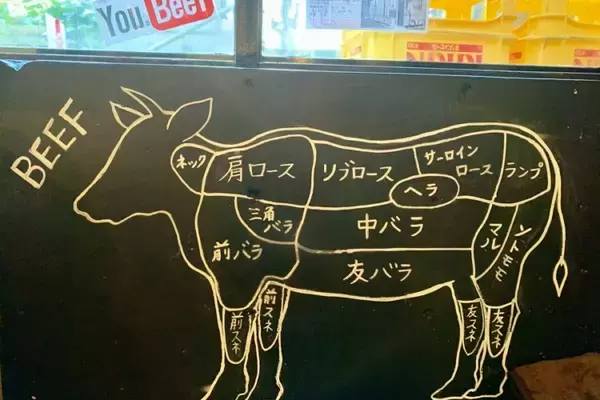 You Beef
KIRIN
BEEF
ネック
肩ロース
リブロース
サーロイン
ロース
ランプ
ヘラ
三角
バラ
中バラ
マル
前バラ
友バラ
前スネ
前スネ
友スネ
友スネ